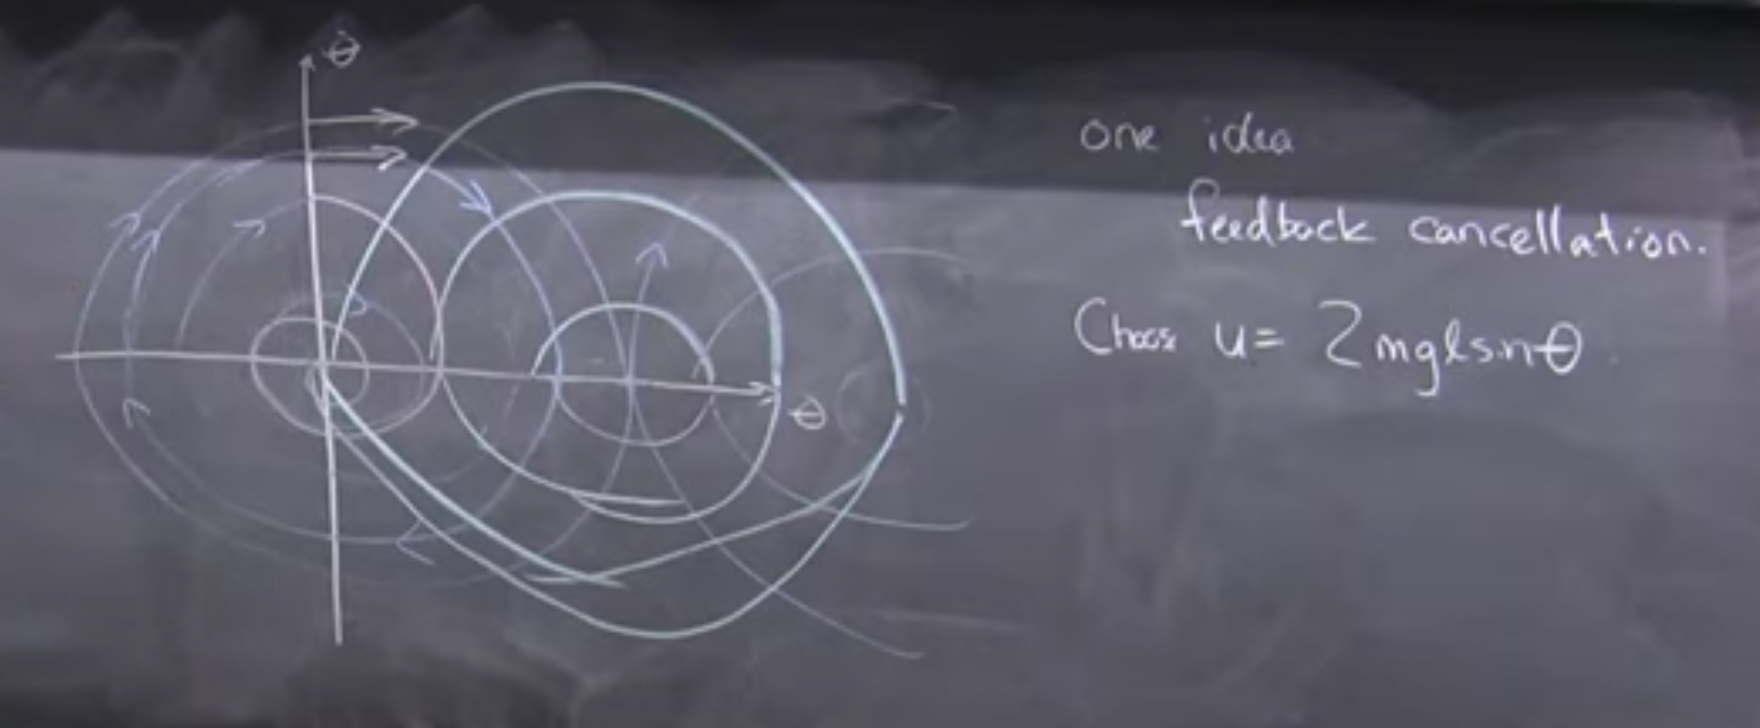 θ̇
one idea
feedback cancellation.
Choose u = 2mglsinθ.
θ